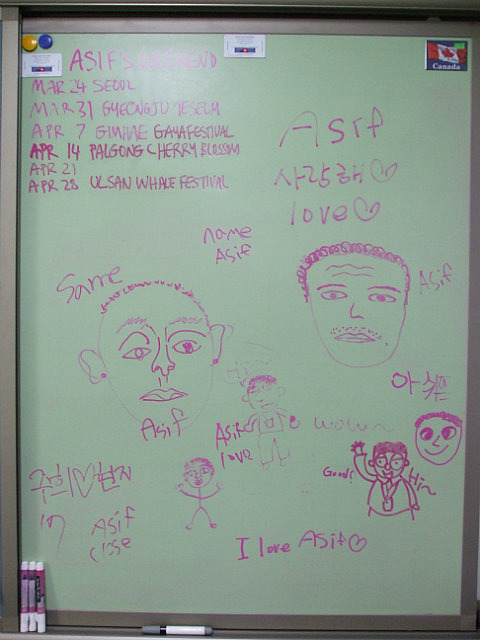 ASIF'S WEEKEND
MAR 24 SEOUL
MAR 31 GYEONGJU
APR 7 GIMHAE GAYA FESTIVAL
APR 14 PALGONG CHERRY BLOSSOM
APR 21
APR 28 ULSAN WHALE FESTIVAL
Canada
Asif
사랑해♡
love♡
name
Asif
Same
Asif
Asif
Hi
아쉬프
Asif
love
wow~
Good!
Hi~
주희♡현지
Asif
close
I love Asif♡